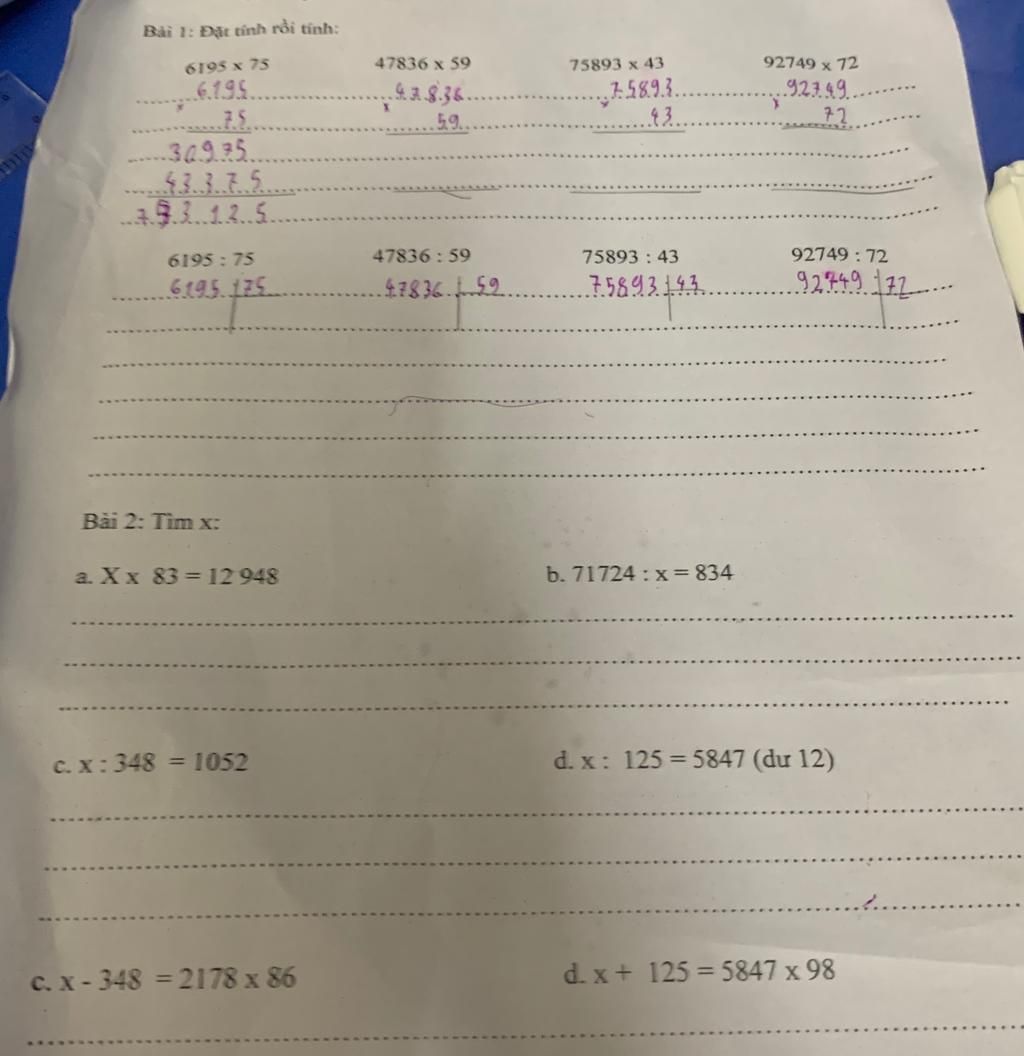 Bài 1: Đặt tính rồi tính:
6195 x 75 47836 x 59 75893 x 43 92749 x 72
6195 47836 75893 92749
x 75 x 59 x 43 x 72
30975
43375
793125
6195 : 75 47836 : 59 75893 : 43 92749 : 72
6195 75 47836 59 75893 43 92749 72
Bài 2: Tìm x:
a. X x 83 = 12 948 b. 71724 : x = 834
c. x : 348 = 1052 d. x : 125 = 5847 (dư 12)
c. x - 348 = 2178 x 86 d. x + 125 = 5847 x 98